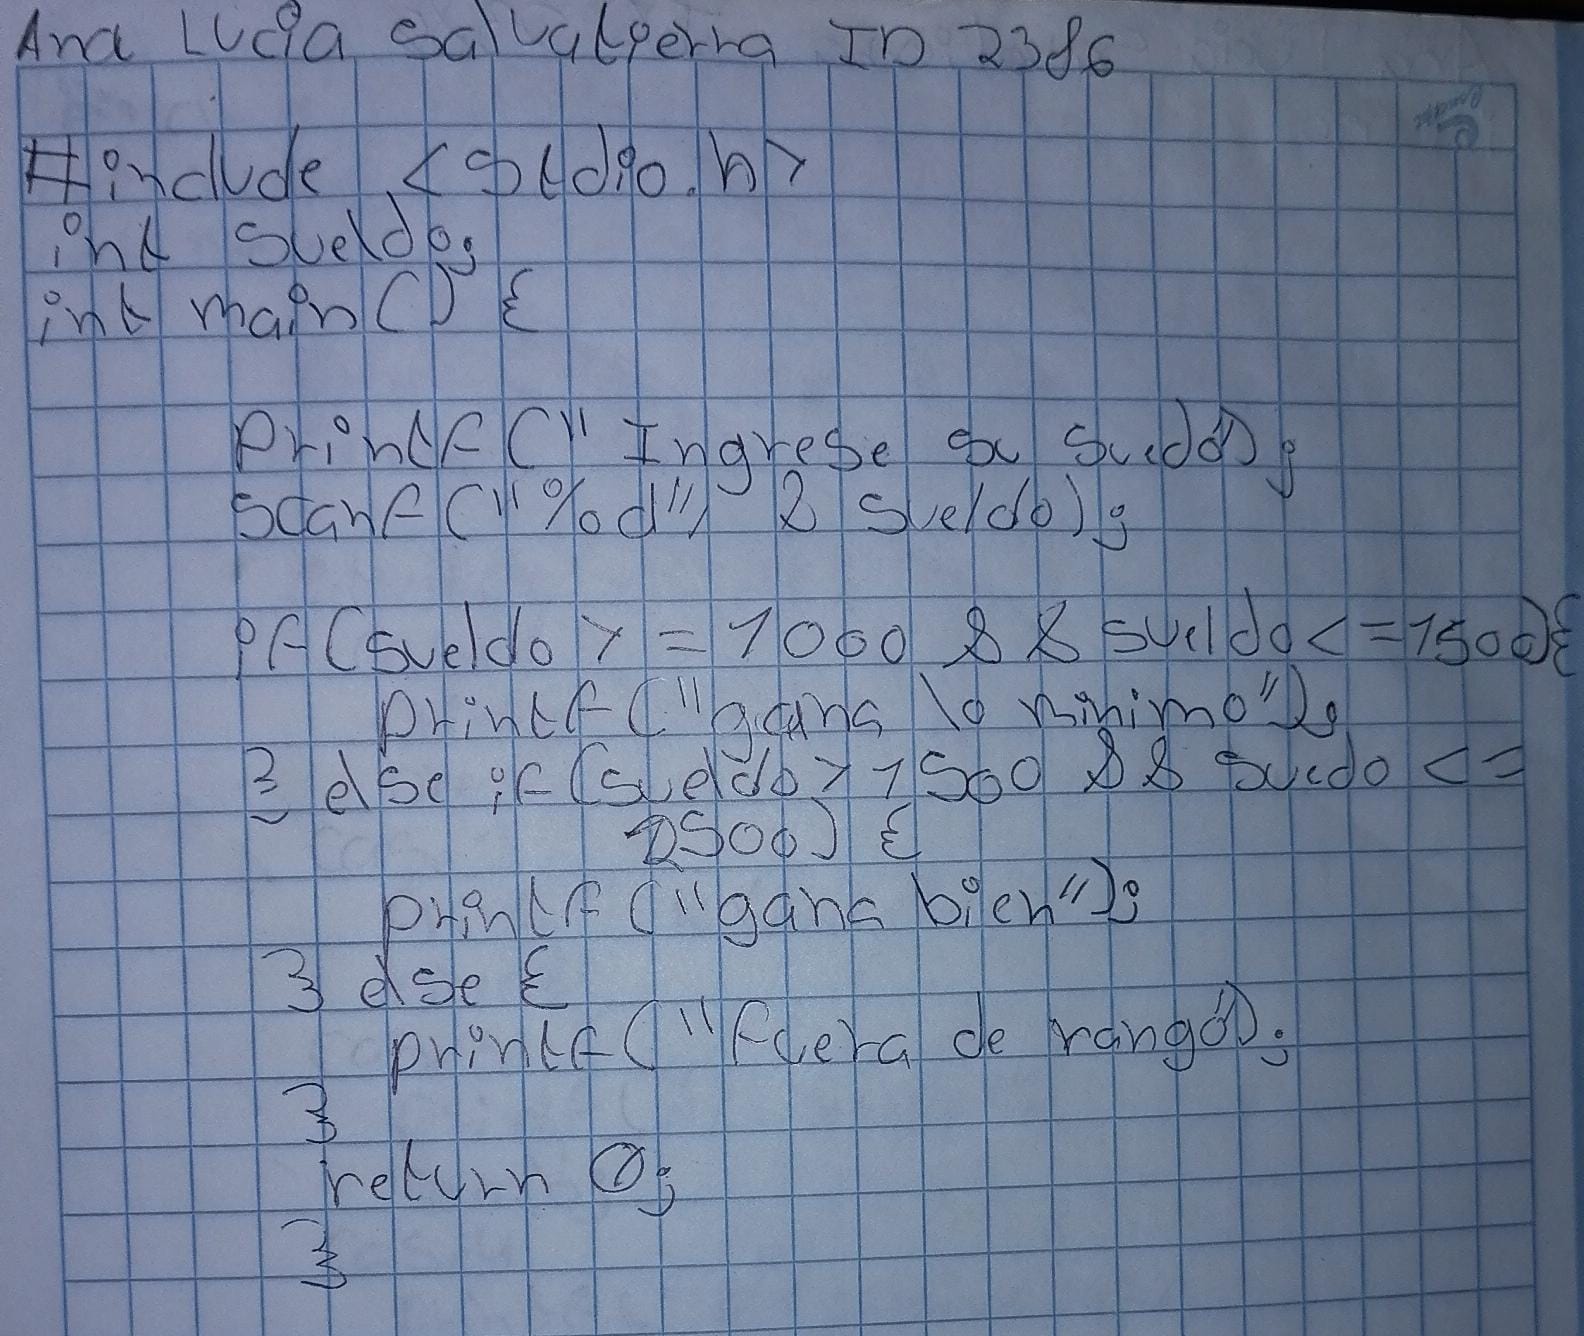 Ana Lucia Salvatierra ID 2386
#include <stdio.h>
int sueldo;
int main() {
printf(" Ingrese su sueldo");
scanf("%d", & sueldo);
if(sueldo >= 1000 && sueldo <= 1500){
printf("gana lo minimo");
} else if (sueldo > 1500 && suedo <=
2500) {
printf("gana bien");
} else {
printf("Fuera de rango");
}
return 0;
}